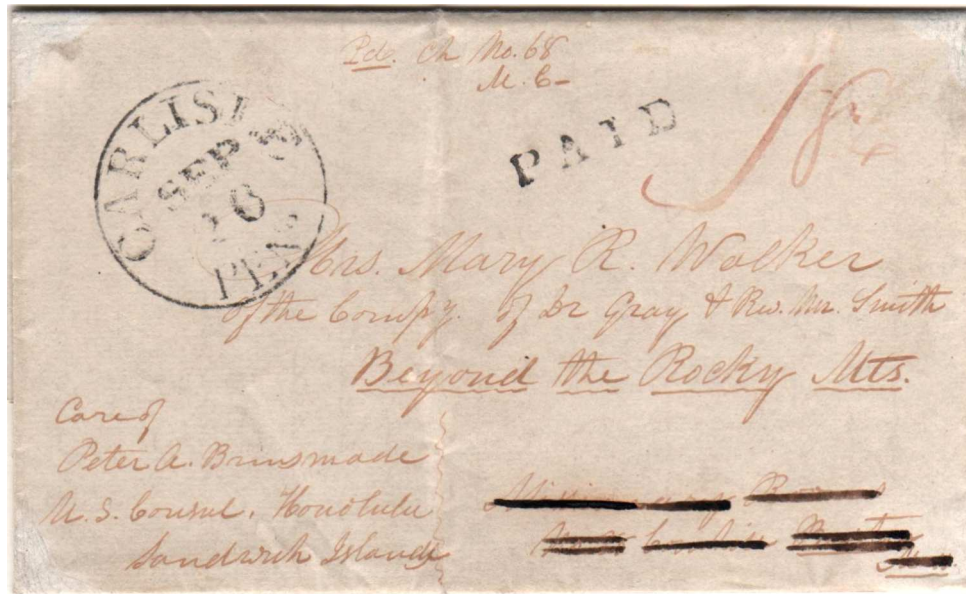 Pd. Ch No. 68
M. C-
CARLISLE
SEP
26
PEN.
PAID
18¾
Mrs. Mary R. Walker
of the Compy. of Dr Gray & Rev. Mr. Smith
Beyond the Rocky Mts.
Care of
Peter A. Brinsmade
U.S. Consul. Honolulu
Sandwich Islands
Missionary Rooms